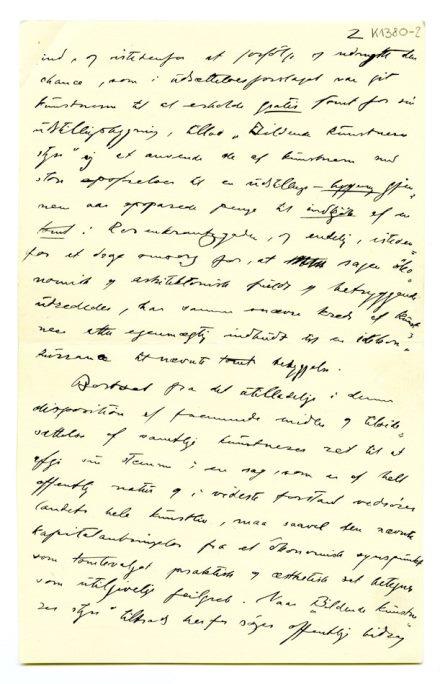 2 K1380-2
ind, og istedenfor at forfølge og udnytte den
chance, som i udsættelsesforslaget var git
kunstnerne til at erholde gratis tomt for sin
utstillingsbygning, tillod „Bildende Kunstneres
styre" sig at anvende de af kunstnerne med
stor opofrelse til en udstillings- bygning gjen-
nem aar opsparede penge til indkjøb af en
tomt i Rosenkrantzgaden, og endelig, isteden-
for at drage omsorg for, at sagen øko-
nomisk og arkitektonisk fuldt og betryggende
utrededes, har samme snævre kreds af kunst-
nere efter egenmægtig indbudt til en
til nævnte tomts bebyggelse.
Bortseet fra det utilladelige i denne
disposition af fremmede midler og tilside-
sættelse af samtlige kunstneres ret til at
afgi sin stemme i en sag, som er af helt
offentlig natur og i videste forstand vedrører
landets hele kunstliv, maa saavel den nævnte
kapitalanbringelse fra et økonomisk synspunkt
som tomtevalget praktisk og æsthetisk set betegnes
som utilgivelige feilgreb. Naar „Bildende Kunstne-
res styre" tiltrods herfor søger offentlig bidrag